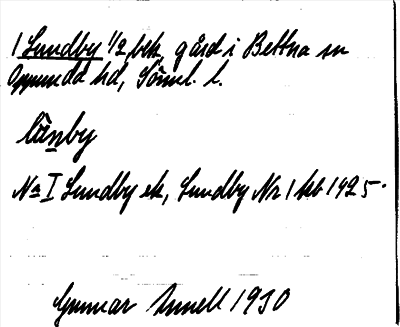 1 Lundby 1/2 bek, gård i Bettna sn
Oppunda hd, Söml. l.
lùnby
No I Lundby ek, Lundby Nr 1 kb 1925.
Gunnar Linnell 1930